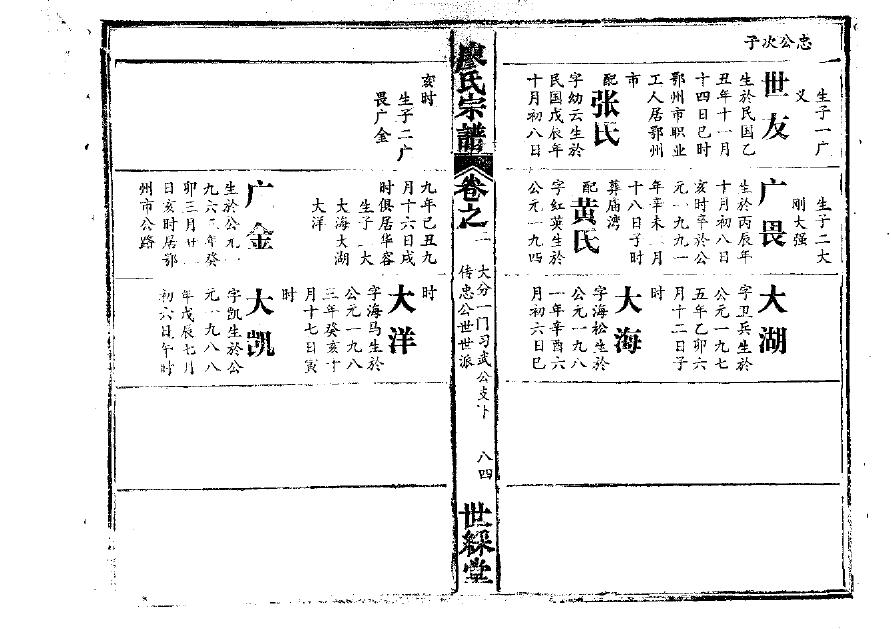 忠公次子
生子一广
义
世友
生於民国乙
丑年十一月
十四日巳时
鄂州市职业
工人居鄂州
市
配
张氏
字幼云生於
民国戊辰年
十月初八日
生子二大
刚大强
广畏
生於丙辰年
十月初八日
亥时卒於公
元一九九一
年辛未一月
十八日子时
葬庙湾
配
黄氏
字红英生於
公元一九四
大湖
字卫兵生於
公元一九七
五年乙卯六
月十二日子
时
大海
字海松生於
公元一九八
一年辛酉六
月初六日巳
廖氏宗譜
卷之二
大分一门习武公支下
传忠公世世派
八四
世綵堂
亥时
生子二广
畏广金
九年己丑九
月十六日戌
时俱居华容
生子一大
大海大湖
大洋
广金
生於公元一
九六三年癸
卯三月廿一
日亥时居鄂
州市公路
时
大洋
字海马生於
公元一九八
三年癸亥十
月十七日寅
时
大凯
字凯生於公
元一九八八
年戊辰七月
初六日午时